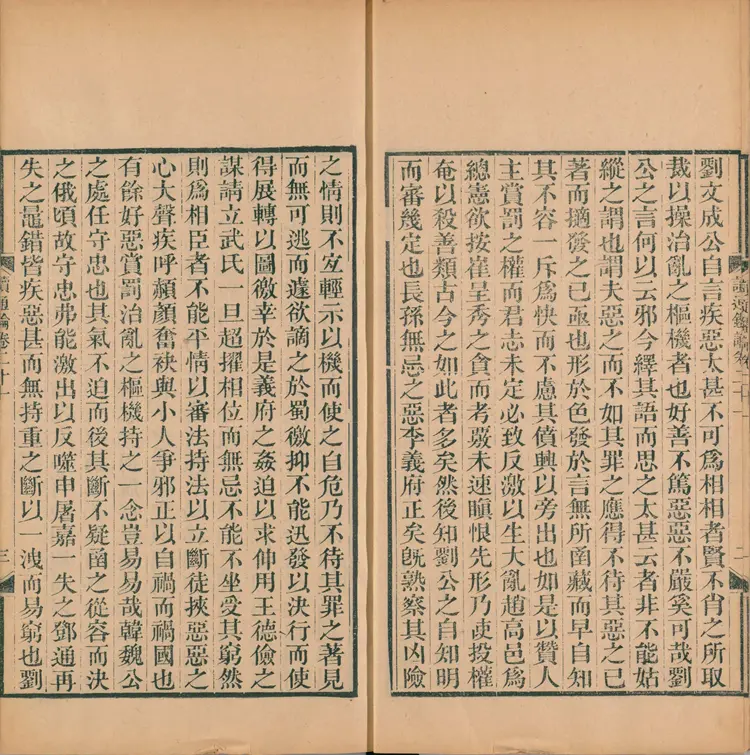 劉文成公自言疾惡太甚不可爲相相者賢不肖之所取
裁以操治亂之樞機者也好善不篤惡惡不嚴奚可哉劉
公之言何以云邪今繹其語而思之太甚云者非不能姑
縱之謂也謂夫惡之而不如其罪之應得不待其惡之已
著而擿發之已亟也形於色發於言無所函藏而早自知
其不容一斥爲快而不慮其僨興以旁出也如是以贊人
主賞罰之權而君志未定必致反激以生大亂趙高邑爲
總憲欲按崔呈秀之貪而考覈未速瞋恨先形乃使投權
奄以殺善類古今之如此者多矣然後知劉公之自知明
而審幾定也長孫無忌之惡李義府正矣旣熟察其凶險
之情則不宜輕示以機而使之自危乃不待其罪之著見
而無可逃而遽欲謫之於蜀徼抑不能迅發以決行而使
得展轉以圖徼幸於是義府之姦迫以求伸用王德儉之
謀請立武氏一旦超擢相位而無忌不能不坐受其窮然
則爲相臣者不能平情以審法持法以立斷徒挾惡惡之
心大聲疾呼頳顏奮袂與小人爭邪正以自禍而禍國也
有餘好惡賞罰治亂之樞機持之一念豈易易哉韓魏公
之處任守忠也其氣不迫而後其斷不疑函之從容而決
之俄頃故守忠弗能激出以反噬申屠嘉一失之鄧通再
失之鼂錯皆疾惡甚而無持重之斷以一洩而易窮也劉
讀通鑑論卷二十一
三